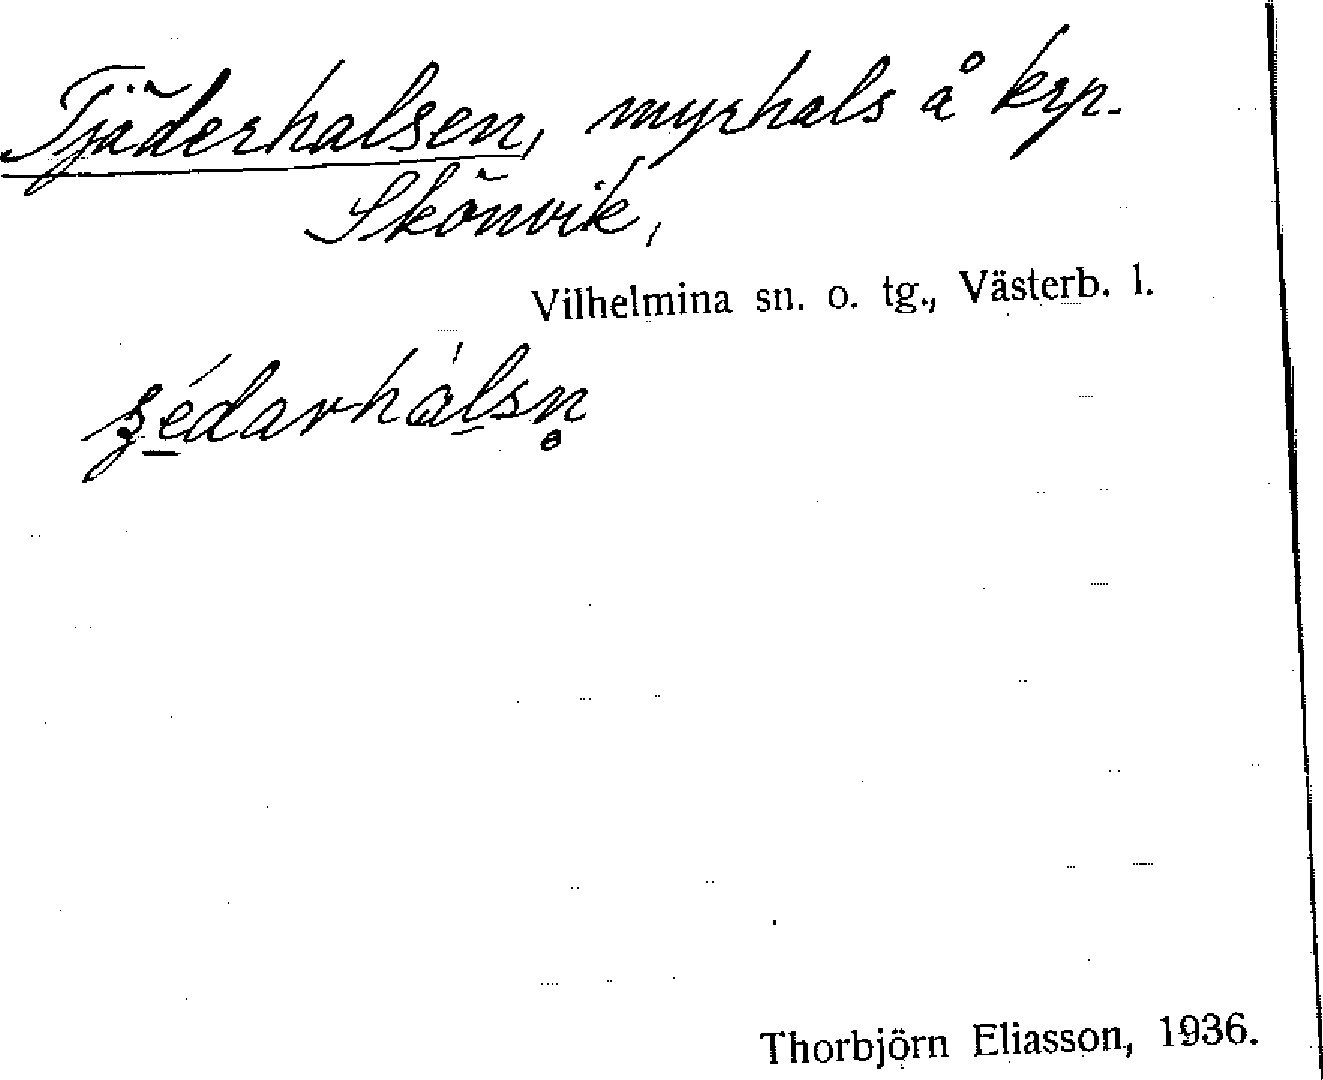 Tjäderhalsen, myrhals å krp.
Skönvik,
Vilhelmina sn. o. tg., Västerb. l.
Thorbjörn Eliasson, 1936.